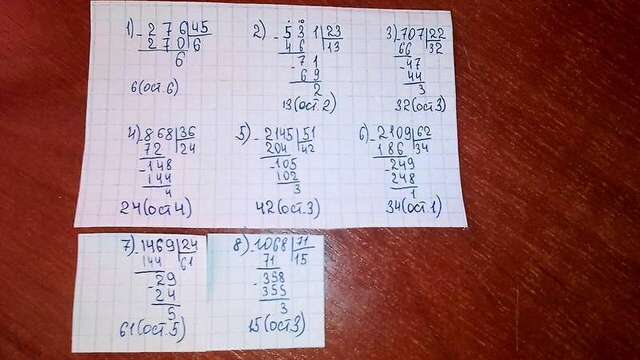 1) -276|45
270|6
6
6(ост.6)
2) -531|23
46|13
-71
69
2
13(ост.2)
3) -707|22
66|32
-47
44
3
32(ост3)
4) -868|36
72|24
-148
144
4
24(ост4)
5) -2145|51
204|42
-105
102
3
42(ост.3)
6) -2109|62
186|34
-249
248
1
34(ост.1)
7) -1469|24
144|61
-29
24
5
61(ост.5)
8) -1068|71
71|15
-358
355
3
15(ост3)